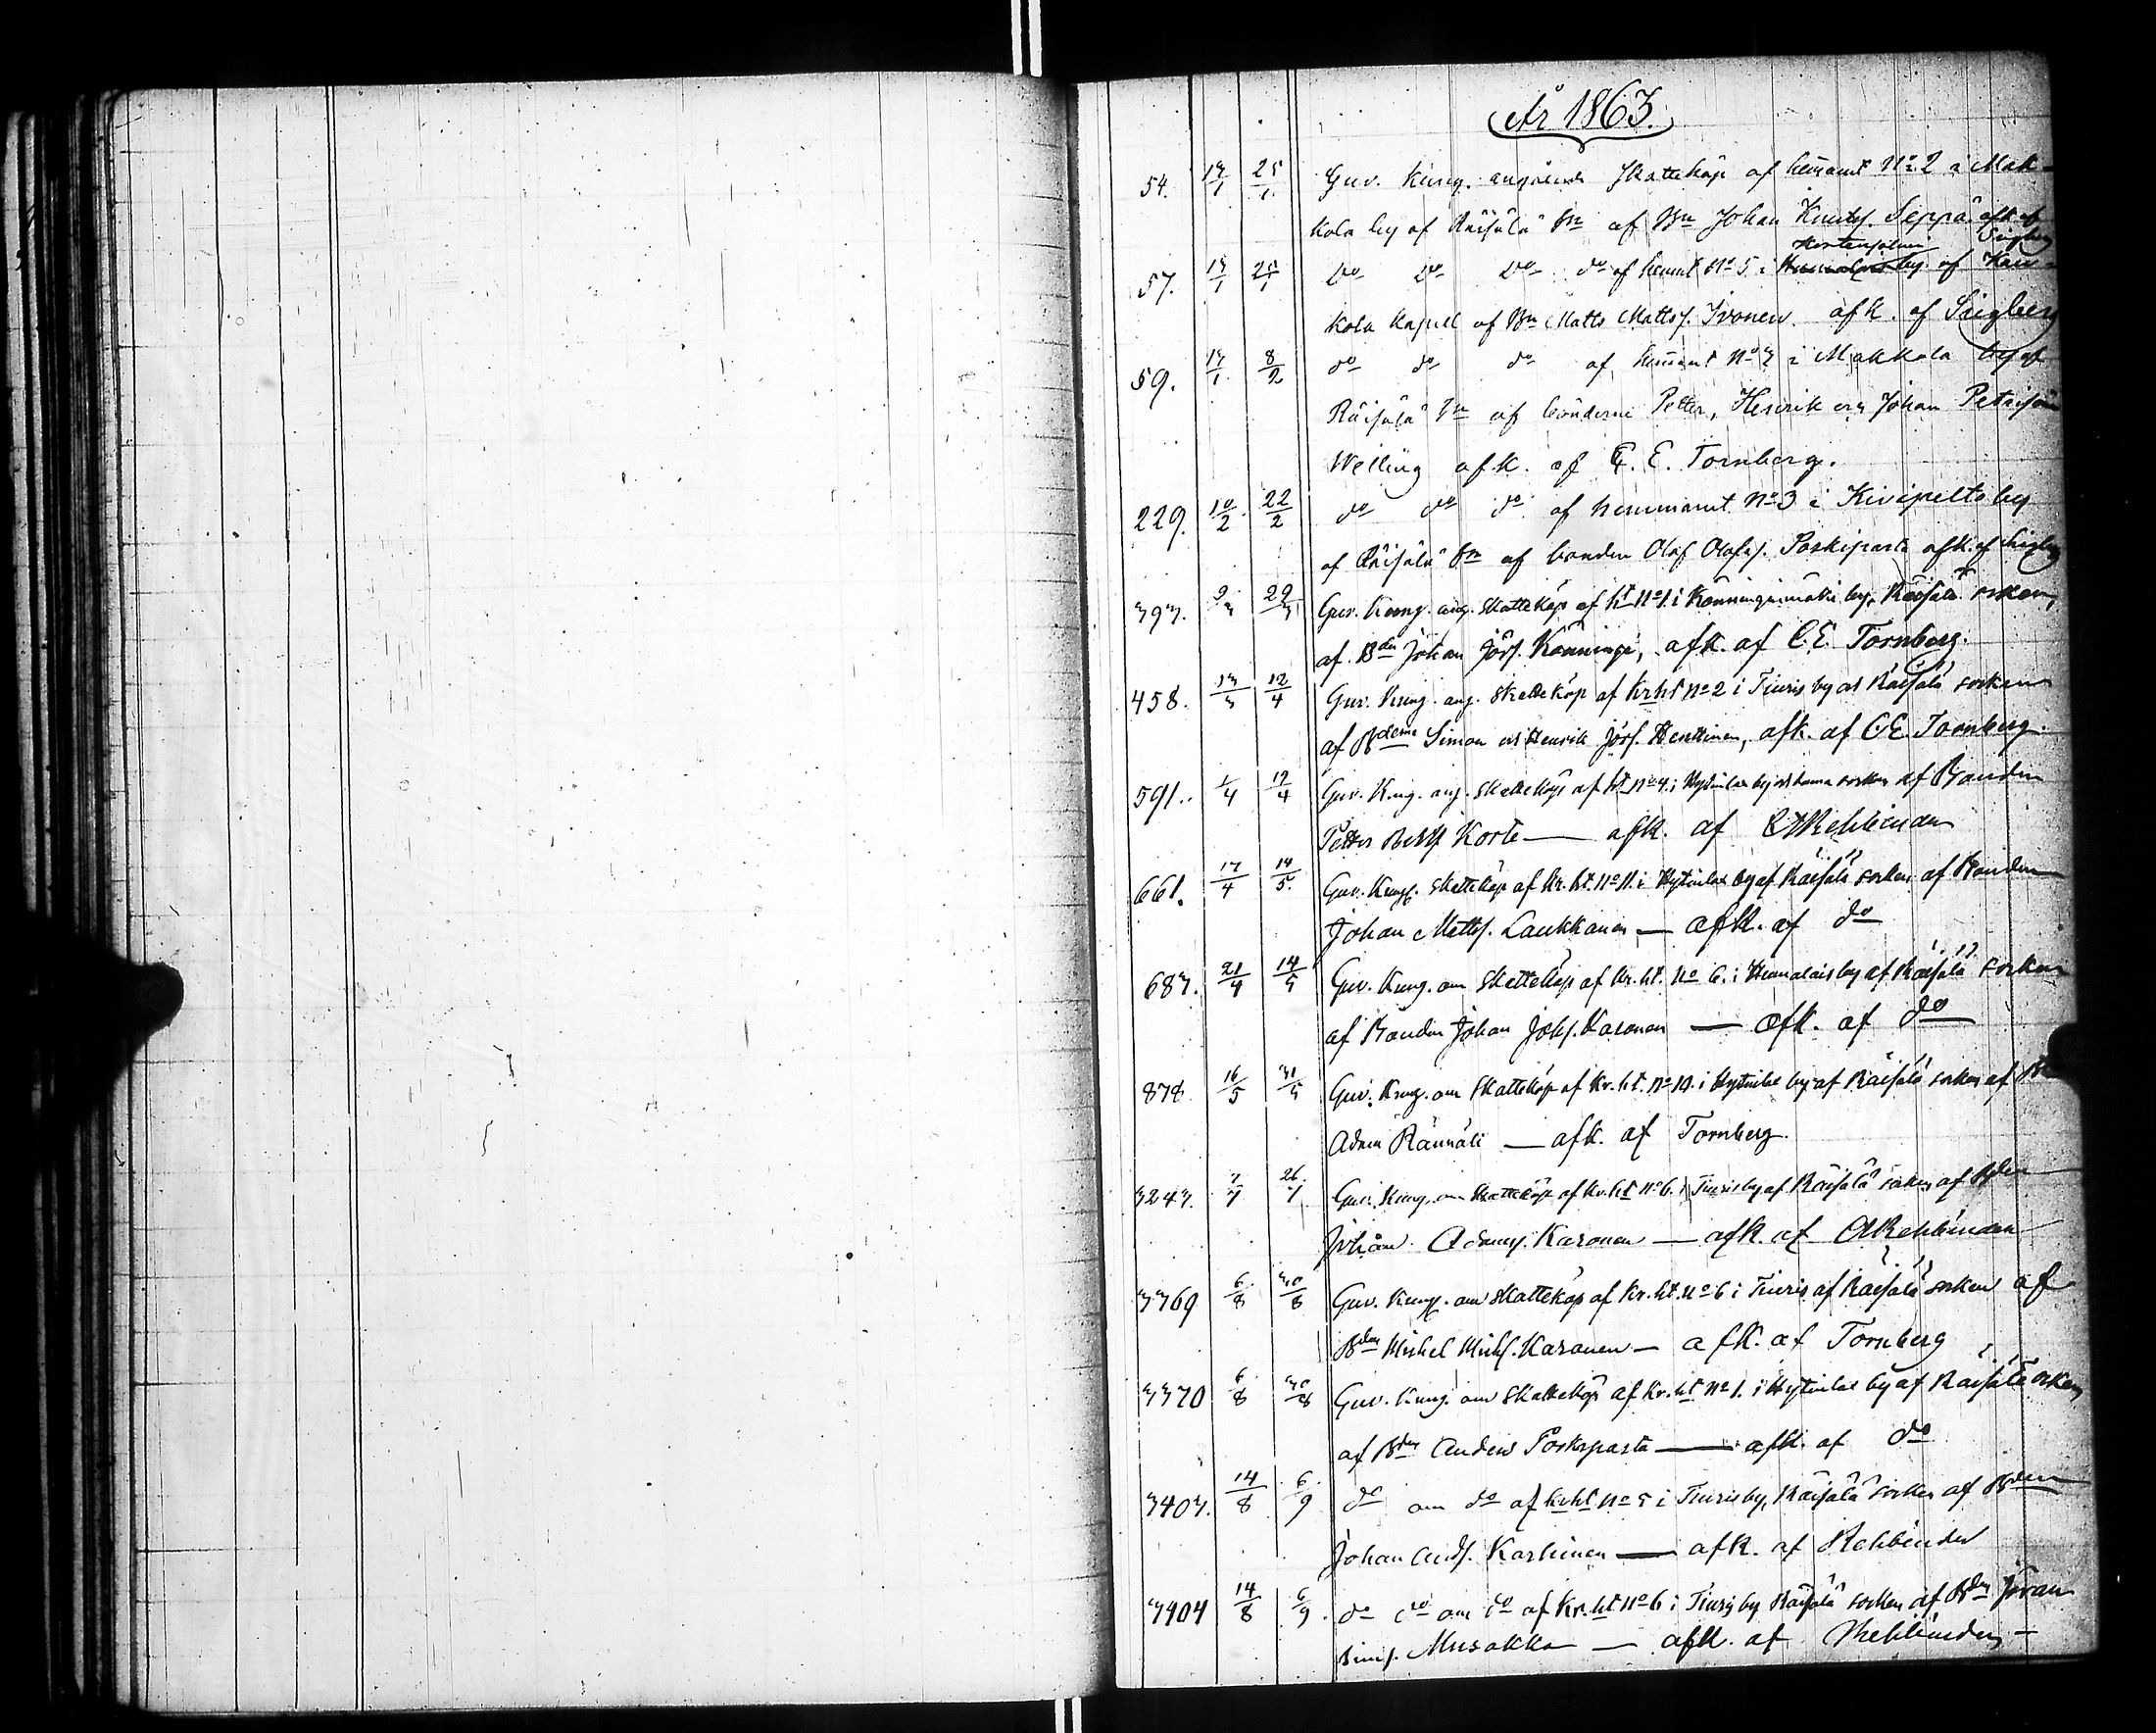 År 1863.
54. 13/1 25/1 Guv. Kung. angående Skatteköp af hemant No 2 i Mak-
kola by af Räisälä Sn af Bn Johan Knutss. Seppä afk. af Sigberg
57. 13/1 25/1 Do Do Do do af hemt No 5 i by af Kau-
kola Kapell af Bn Matts Mattss. Ivonen. afk. af Sigberg
59. 13/1 8/2 do do do af hemant No 7 i Makkola by af
Räisälä Sn af bönderne Petter, Henrik och Johan Petersson
Welling afk. af C. E. Tornberg.
229. 10/2 22/2 do do do af hemmant No 3 i Kivipelto by
af Räisälä Sn af bonden Olof Olofss. Poskiparta afk. af Sigberg
393. 9/3 29/3 Guv. Kung. ang. skatteköp af ht No 1. i Könninginmäki by, Räisälä socken,
af Bden Johan Jörs. Könninge, afk. af C. E. Tornberg.
458. 13/3 12/4 Guv. Kung. ang. skatteköp af krht No 2 i Tiuris by af Räisälä socken
af Bderne Simon och Henrik Jörs. Henttinen, afk. af C. E. Tornberg.
591. 1/4 19/4 Guv. Kung. ang. skatteköp af ht No 4. i Hytinlax by samma socken af Bonden
Petter Korte — afk. af Rehbinder
661. 17/4 14/5. Guv. Kung. skatteköp af Kr. ht. No 11. i Hytinlax by af Räisälä socken af Bonden
Johan Matts. Laukkanen — afk. af do
683. 21/4 14/5 Guv. Kung. om skatteköp af Kr. ht. No 6. i Humalais by af Räisälä socken
af Bonden Johan Johs. Kasonen — afk. af do
878. 16/5 31/5 Guv. Kung. om skatteköp af Kr. ht. No 10. i Hytinlax by af Räisälä socken af
Adam Rännäli — afk. af Tornberg.
3243. 7/7 26/7 Guv. Kung. om skatteköp af Kr. ht No 6. i Tiuris by af Räisälä socken af Bden
Johan Adams. Kasonen — afk. af Rehbinder
3369 6/8 30/8 Guv. Kung. om skatteköp af Kr. ht. No 6 i Tiuris af Räisälä socken af
Bden Michel Michs. Kasonen — afk. af Tornberg
3370 6/8 30/8 Guv. Kung. om skatteköp af Kr. ht No 1. i Hytinlax by af Räisälä socken
af Bden Anders Poskiparta — afk. af do
3403. 14/8 6/9 do om do af krht No 5 i Tiuris by, Räisälä socken af Bden
Johan Ands. Karhinen — afk. af Rehbinder
3404 14/8 6/9. do do om do af Kr. ht No 6 i Tiuris by Räisälä socken af Bden Jöran
Sims. Musakka — afk. af Rehbinder —